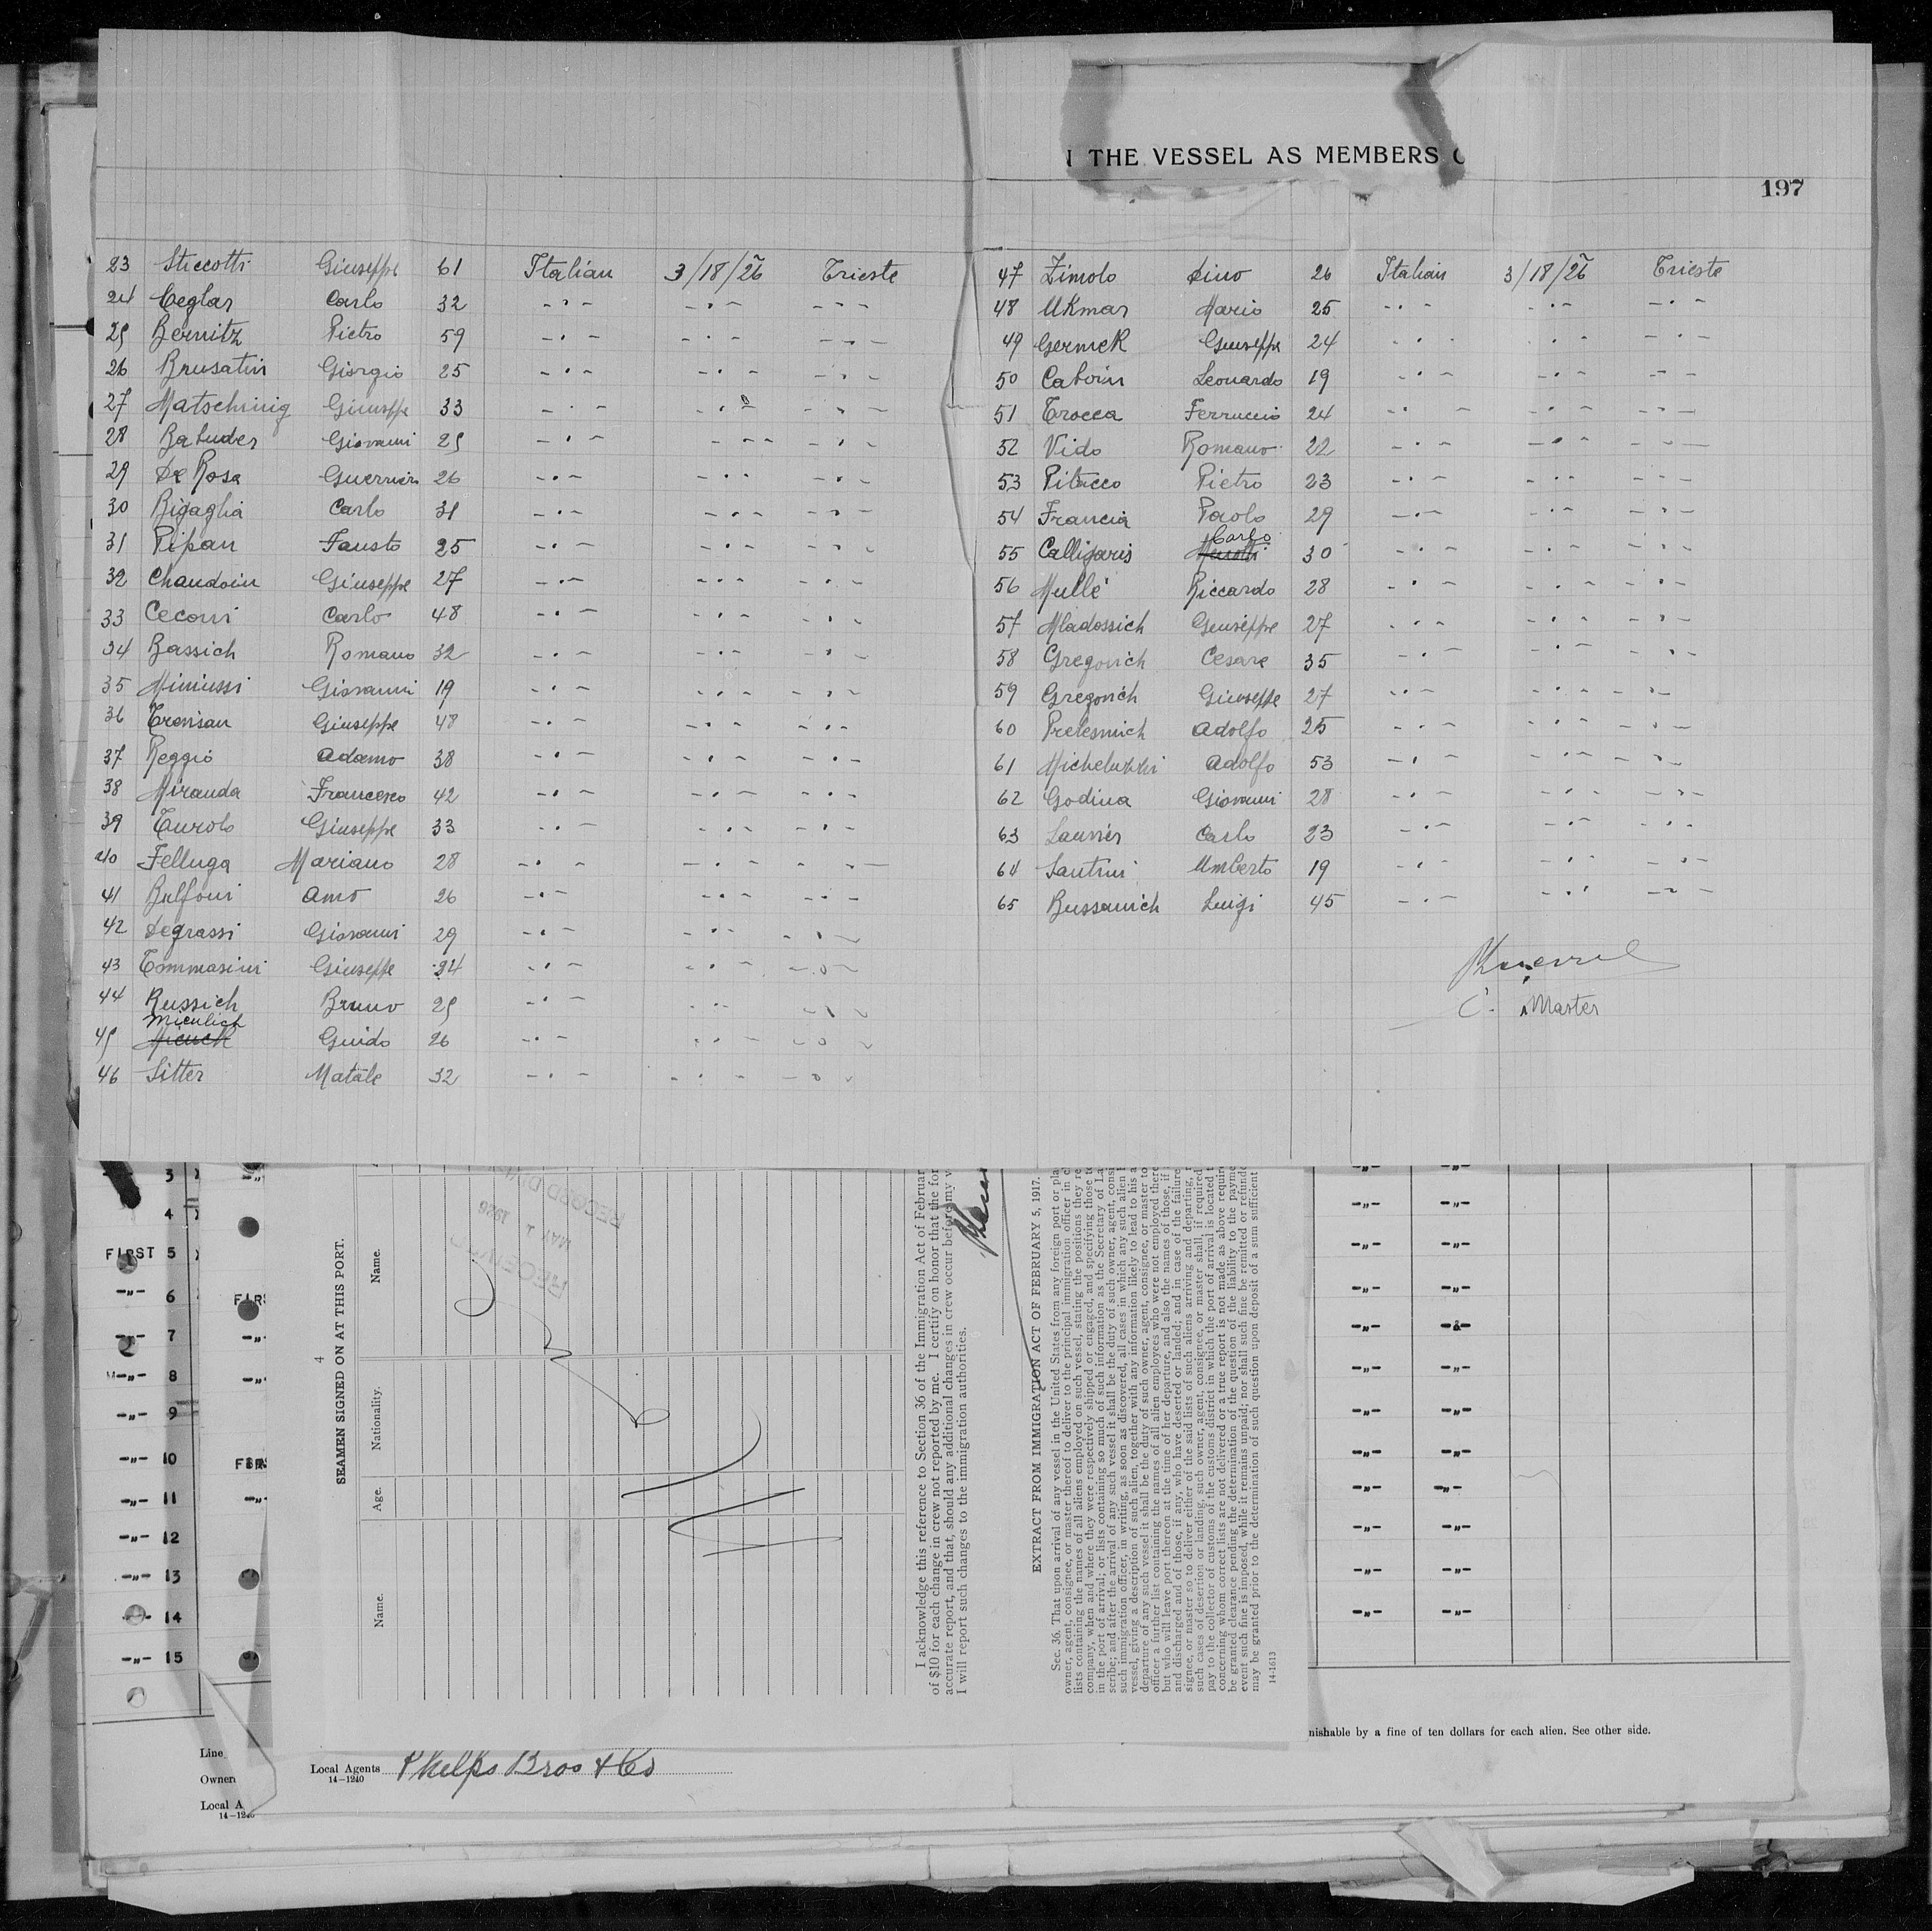 N THE VESSEL AS MEMBERS O
197
23 Sticcotti Giuseppe 61 Italian 3/18/26 Trieste
24 Ceglar Carlo 32 -"- -"- -"-
25 Bernitz Pietro 59 -"- -"- -"-
26 Brusatin Giorgio 25 -"- -"- -"-
27 Matschinig Giuseppe 33 -"- -"- -"-
28 Batuder Giovanni 25 -"- -"- -"-
29 De Rosa Guerrier 26 -"- -"- -"-
30 Bigaglia Carlo 31 -"- -"- -"-
31 Pipan Fausto 25 -"- -"- -"-
32 Chaudoin Giuseppe 27 -"- -"- -"-
33 Ceconi Carlo 48 -"- -"- -"-
34 Bassich Romano 32 -"- -"- -"-
35 Miniussi Giovanni 19 -"- -"- -"-
36 Trevisan Giuseppe 48 -"- -"- -"-
37 Reggio Adamo 38 -"- -"- -"-
38 Miranda Francesco 42 -"- -"- -"-
39 Turolo Giuseppe 33 -"- -"- -"-
40 Felluga Mariano 28 -"- -"- -"-
41 Bulfoni Amo 26 -"- -"- -"-
42 Degrassi Giovanni 29 -"- -"- -"-
43 Tommasini Giuseppe 24 -"- -"- -"-
44 Russich Bruno 25 -"- -"- -"-
Miculich
45 Guido 26 -"- -"- -"-
46 Sitter Natale 32 -"- -"- -"-
47 Zimolo Dino 26 Italian 3/18/26 Trieste
48 Ukmar Mario 25 -"- -"- -"-
49 Gernek Giuseppe 24 -"- -"- -"-
50 Caboin Leonardo 19 -"- -"- -"-
51 Trocca Ferruccio 24 -"- -"- -"-
52 Vido Romano 22 -"- -"- -"-
53 Pitacco Pietro 23 -"- -"- -"-
54 Francia Paolo 29 -"- -"- -"-
Carlo
55 Calligaris Menotti 30 -"- -"- -"-
56 Mullé Riccardo 28 -"- -"- -"-
57 Mladossich Giuseppe 27 -"- -"- -"-
58 Gregorich Cesare 35 -"- -"- -"-
59 Gregorich Giuseppe 27 -"- -"- -"-
60 Prelesnich Adolfo 25 -"- -"- -"-
61 Micheluzzi Adolfo 53 -"- -"- -"-
62 Godina Giovanni 28 -"- -"- -"-
63 Launer Carlo 23 -"- -"- -"-
64 Santini Umberto 19 -"- -"- -"-
65 Bussanich Luigi 45 -"- -"- -"-
Master
3
4
FIRST 5
-"- 6 FIRS
-"- 7 -"-
-"- 8 -"-
-"- 9
-"- 10 FIRS
-"- 11 -"-
-"- 12
-"- 13
-"- 14
-"- 15
4
SEAMEN SIGNED ON AT THIS PORT.
Name. Age. Nationality. Name.
RECEIVED
MAY 1 1926
RECORD DIV
I acknowledge this reference to Section 36 of the Immigration Act of Februar
of $10 for each change in crew not reported by me. I certify on honor that the for
accurate report, and that, should any additional changes in crew occur before my v
I will report such changes to the immigration authorities.
EXTRACT FROM IMMIGRATION ACT OF FEBRUARY 5, 1917.
Sec. 36. That upon arrival of any vessel in the United States from any foreign port or pla
owner, agent, consignee, or master thereof to deliver to the principal immigration officer in c
lists containing the names of all aliens employed on such vessel, stating the positions they re
company, when and where they were respectively shipped or engaged, and specifying those t
in the port of arrival; or lists containing so much of such information as the Secretary of La
scribe; and after the arrival of any such vessel it shall be the duty of such owner, agent, consi
such immigration officer, in writing, as soon as discovered, all cases in which any such alien
vessel, giving a description of such alien, together with any information likely to lead to his a
departure of any such vessel it shall be the duty of such owner, agent, consignee, or master to
officer a further list containing the names of all alien employees who were not employed there
but who will leave port thereon at the time of her departure, and also the names of those, if
and discharged and of those, if any, who have deserted or landed; and in case of the failure
signee, or master so to deliver either of the said lists of such aliens arriving and departing, r
such cases of desertion or landing, such owner, agent, consignee, or master shall, if required
pay to the collector of customs of the customs district in which the port of arrival is located t
concerning whom correct lists are not delivered or a true report is not made as above require
be granted clearance pending the determination of the question of the liability to the payme
event such fine is imposed, while it remains unpaid; nor shall such fine be remitted or refunde
may be granted prior to the determination of such question upon deposit of a sum sufficient
14-1613
nishable by a fine of ten dollars for each alien. See other side.
Line
Owners
Local A
14-1240
Local Agents Phelps Bros & Co
14-1240